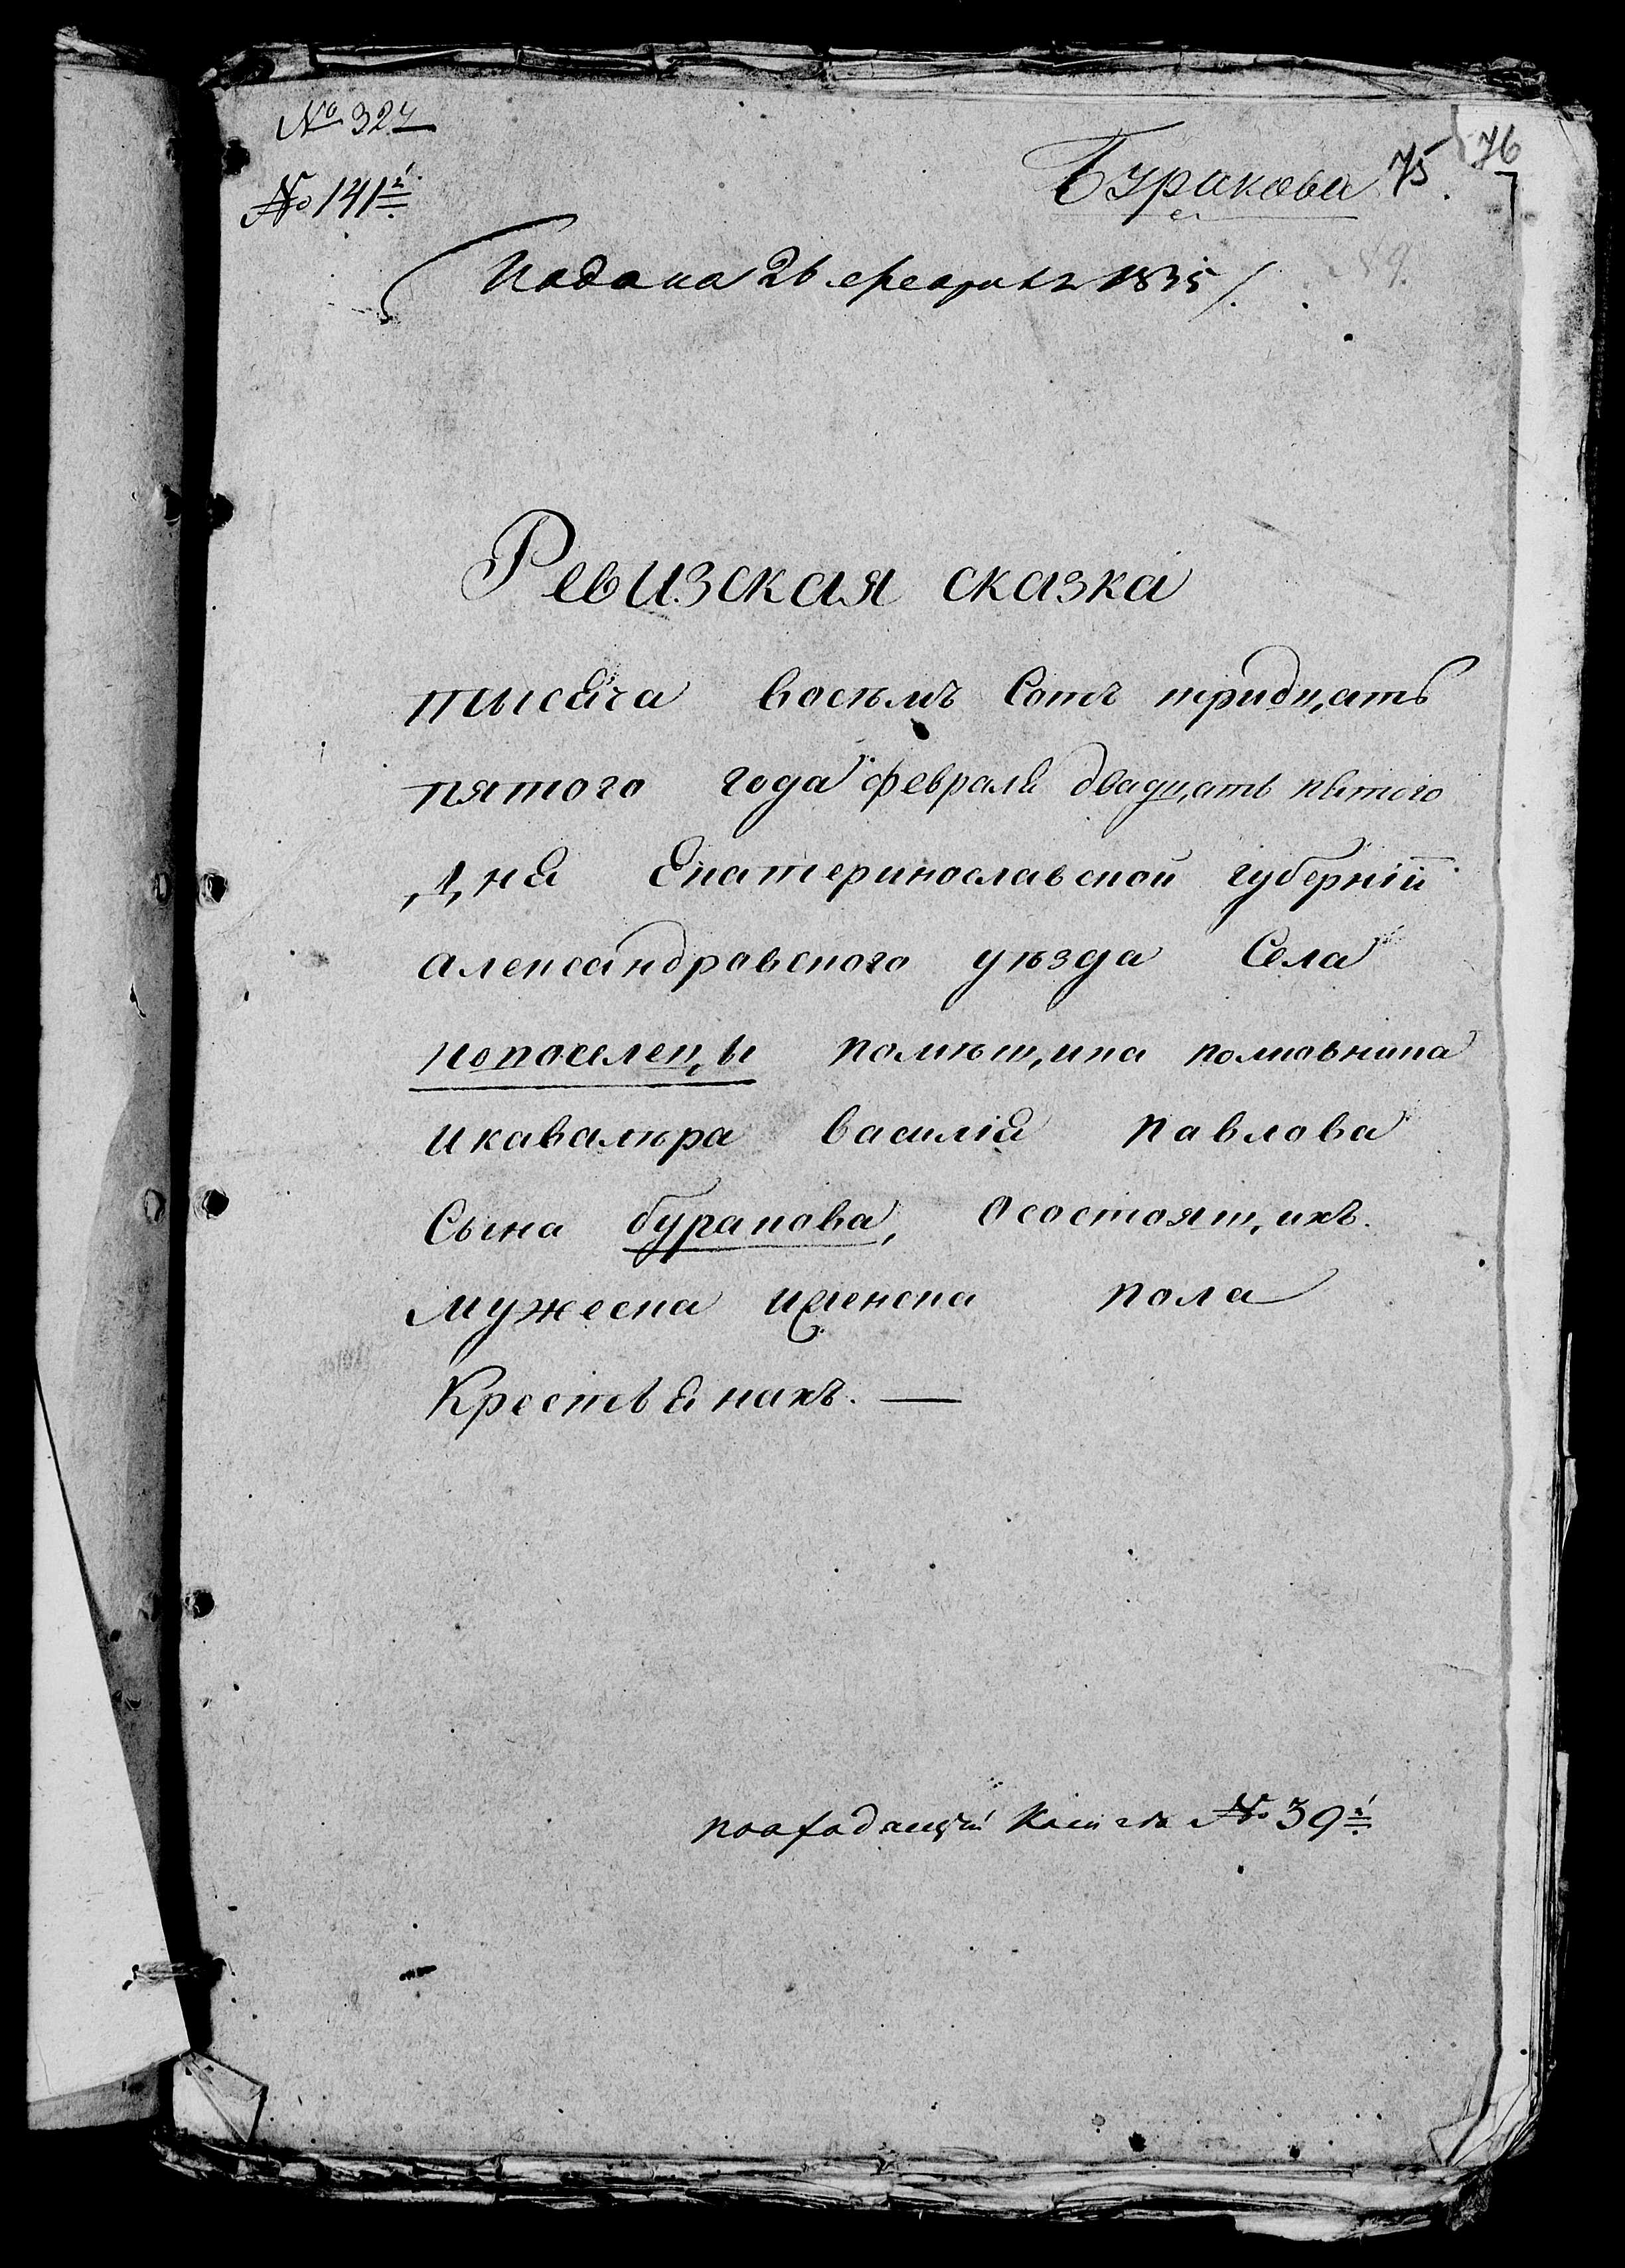 № 324
№ 141й
Буракова 75. 76
Подана 26 февраля 1835/.
Ревизская сказка
тысяча восѣмъ Сотъ тридцать
пятого года февраля двадцать пятого
дня Екатеринославской губерніи
александровского уѣзда Села
новоселецы помѣщика полковника
икавалѣра василія павлова
Сына буракова, Осостоящихъ
мужеска иженска пола
Крестьянахъ. —
Книге № 39й